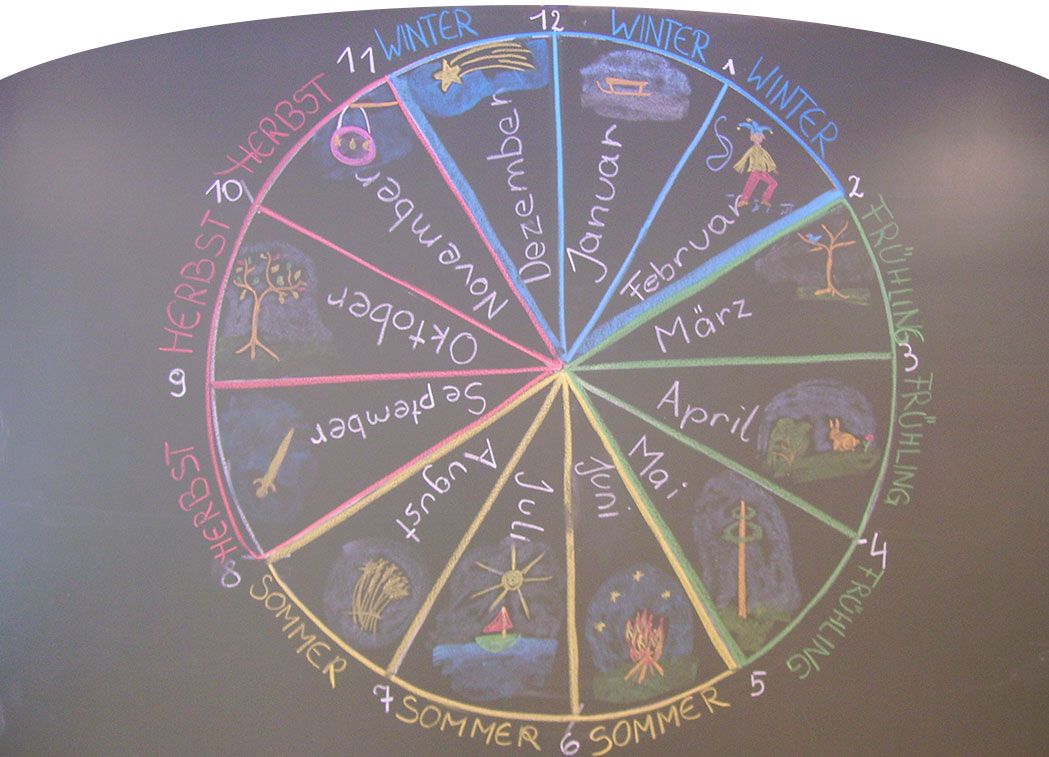 12
WINTER
1
WINTER
2
FRÜHLING
3
FRÜHLING
4
FRÜHLING
5
SOMMER
6
SOMMER
7
SOMMER
8
HERBST
9
HERBST
10
HERBST
11
WINTER
Januar
Februar
März
April
Mai
Juni
Juli
August
September
Oktober
November
Dezember